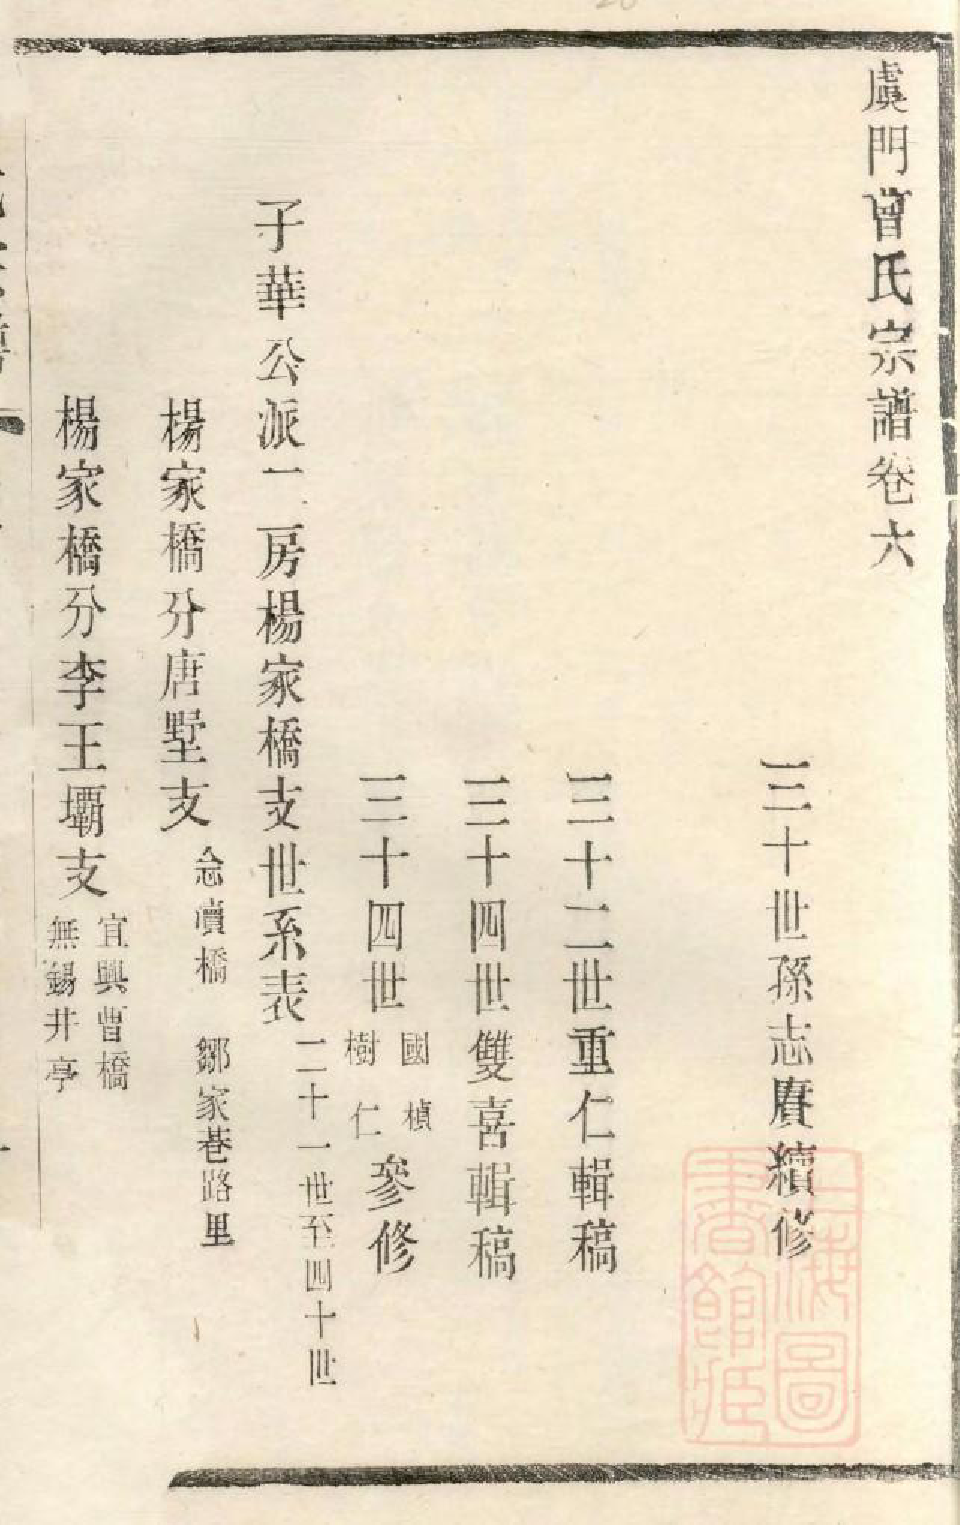 虞門曾氏宗譜卷六
三十世孫志賡續修
三十二世重仁輯稿
三十四世雙喜輯稿
三十四世國楨樹仁參修
子華公派二房楊家橋支世系表二十一世至四十世
楊家橋分唐墅支念瀆橋 鄒家巷路里
楊家橋分李王壩支宜興曹橋無錫井亭
上海圖書館藏